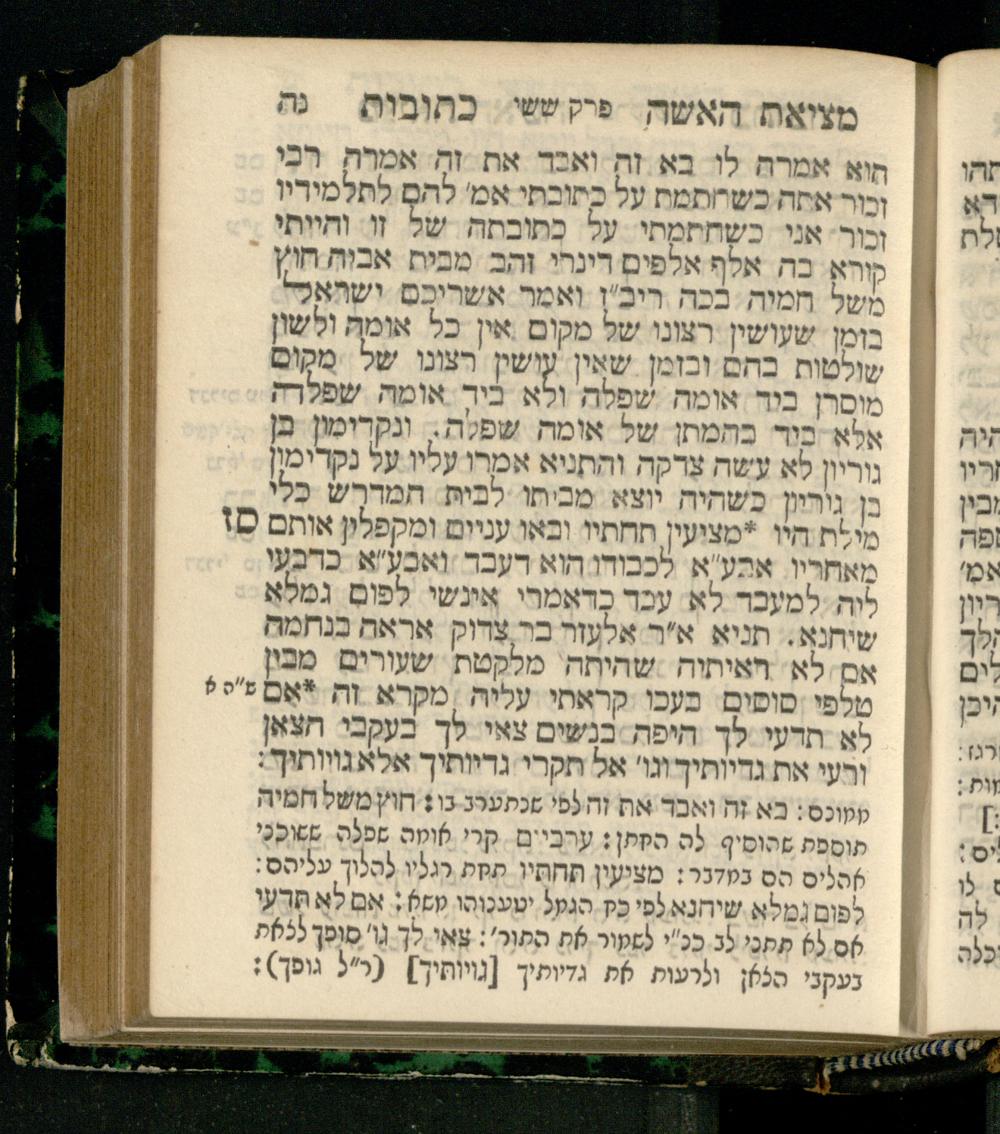 מציאת האשה פרק ששי כתובות נה
הוא אמרה לו בא זה ואבד את זה אמרה רבי
זכור אתה כשחתמת על כתובתי אמ' להם לתלמידיו
זכור אני כשחתמתי על כתובתה של זו והייתי
קורא בה אלף אלפים דינרי זהב מבית אביה חוץ
משל חמיה בכה ריב"ז ואמר אשריכם ישראל
בזמן שעושין רצונו של מקום אין כל אומה ולשון
שולטות בהם ובזמן שאין עושין רצונו של מקום
מוסרן ביד אומה שפלה ולא ביד אומה שפלה
אלא ביד בהמתן של אומה שפלה. ונקדימון בן
גוריון לא עשה צדקה והתניא אמרו עליו על נקדימון
בן גוריון כשהיה יוצא מביתו לבית המדרש כלי
מילת היו *מציעין תחתיו ובאו עניים ומקפלין אותם סז
מאחריו אבע"א לכבודו הוא דעבד ואבע"א כדבעי
ליה למעבד לא עבד כדאמרי אינשי לפום גמלא
שיחנא. תניא א"ר אלעזר בר צדוק אראה בנחמה
אם לא ראיתיה שהיתה מלקטת שעורים מבין
טלפי סוסים בעכו קראתי עליה מקרא זה *אם ש"ה א
לא תדעי לך היפה בנשים צאי לך בעקבי הצאן
ורעי את גדיותיך וגו' אל תקרי גדיותיך אלא גויותיך:
ממונס: בא זה ואבד את זה לפי שנתערב בו: חוץ משל חמיה
תוספת שהוסיף לה החתן: ערביים קרי אומה שפלה ששוכני
אהלים הם במדבר: מציעין תחתיו תחת רגליו להלוך עליהם:
לפום גמלא שיחנא לפי כח הגמל יטענוהו משא: אם לא תדעי
אם לא תתני לב ככ"י לשמור את התור': צאי לך גו' סופך לצאת
בעקבי הצאן ולרעות את גדיותיך [גויותיך] (ר"ל גופך):